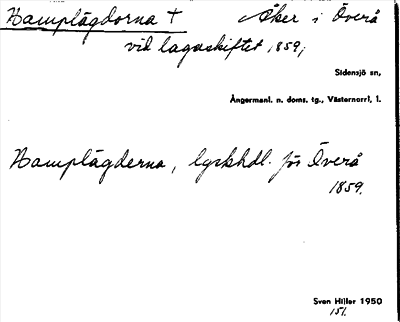 Hamplägdorna † Åker i Överå
vid lagaskiftet 1859;
Sidensjö sn,
Ångermanl. n. doms. tg., Västernorrl. l.
Hamplägderna, lyskhdl. för Överå
1859.
Sven Hiller 1950
151.